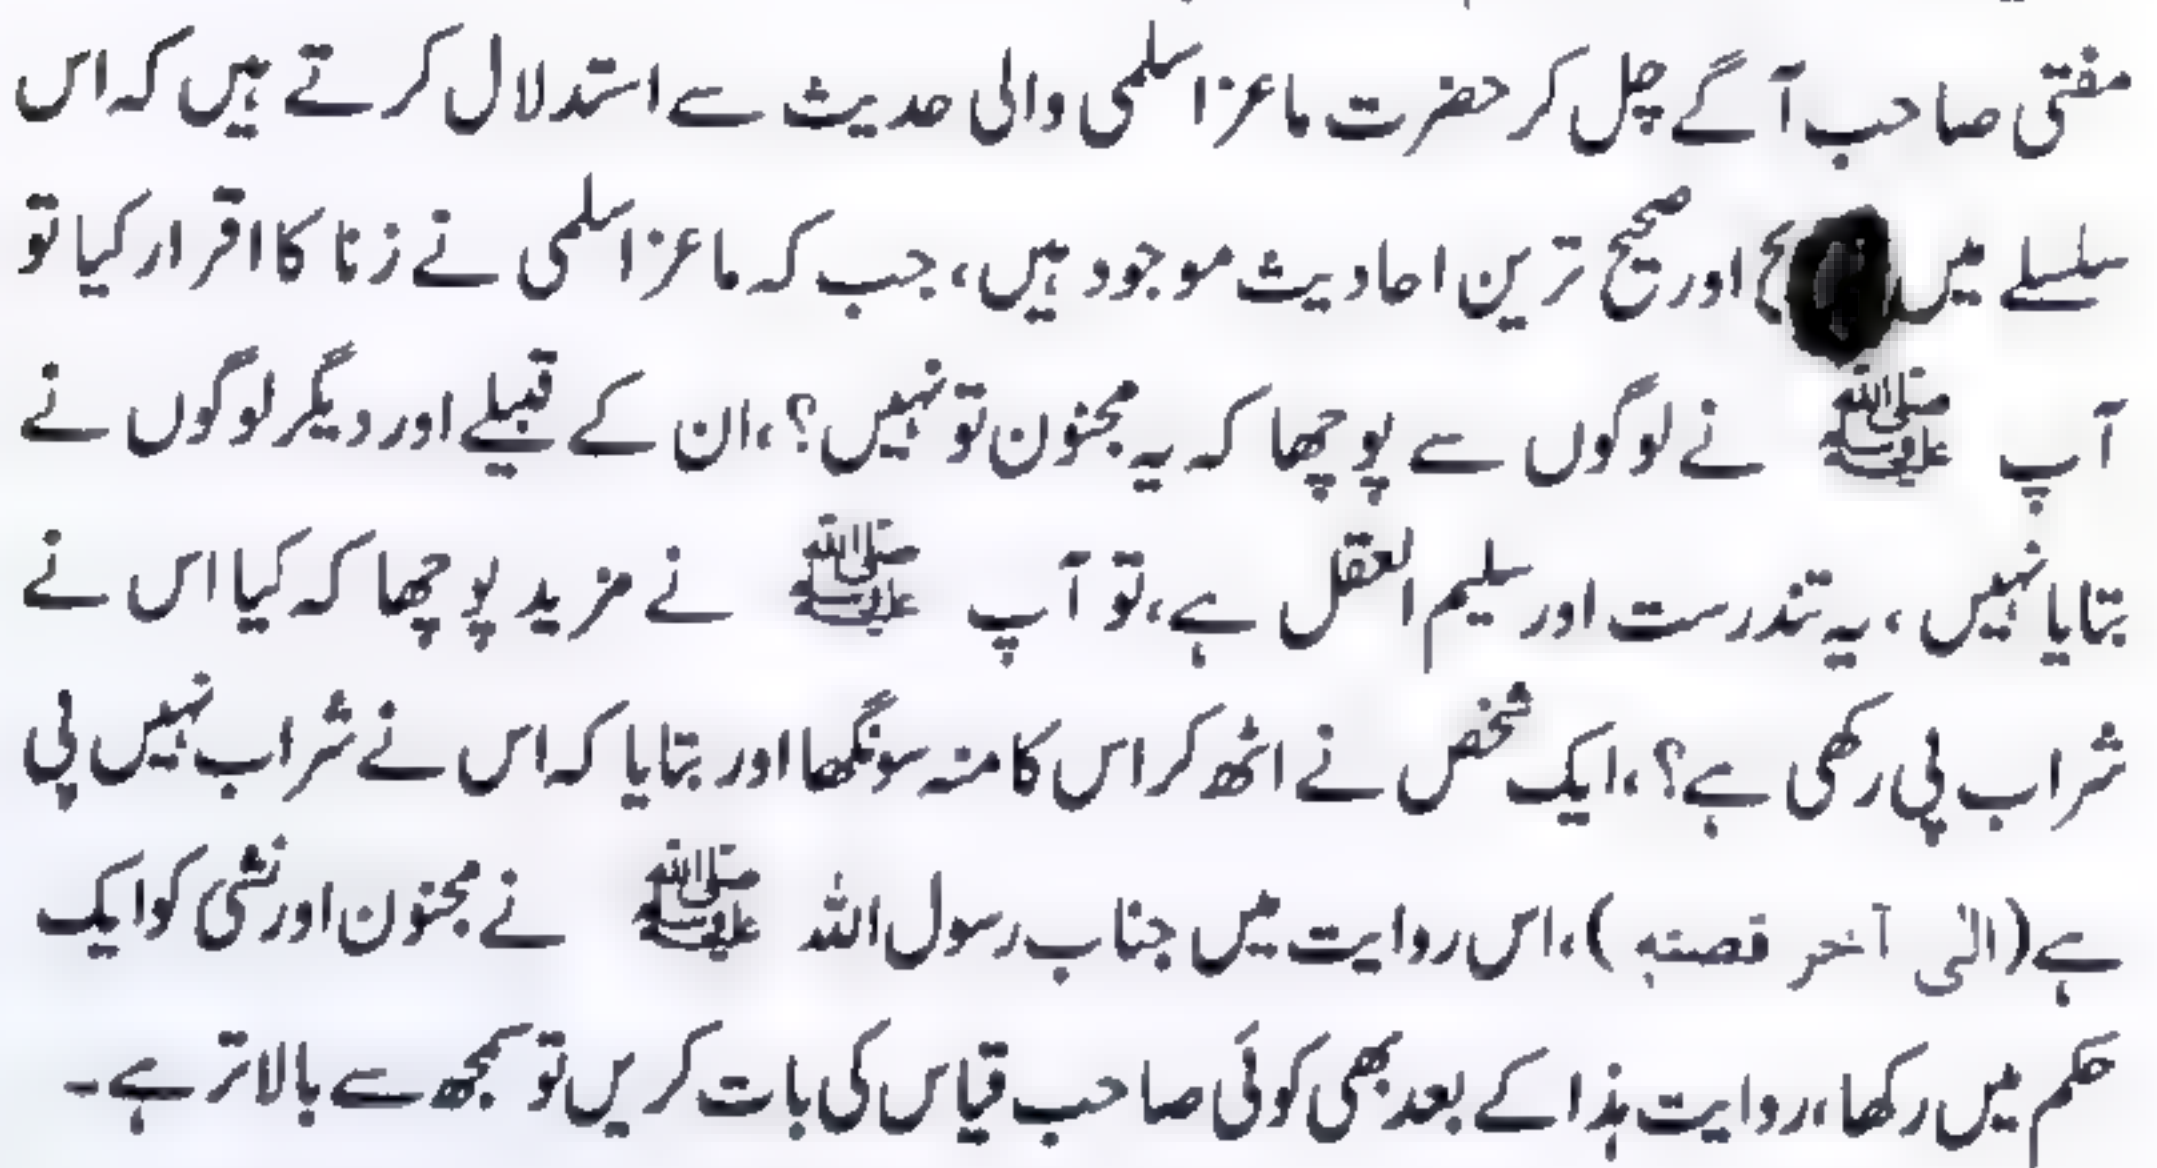 مفتی صاحب آگے چل کر حضرت ماعز اسلمی والی حدیث سے استدلال کرتے ہیں کہ اس
سلسلے میں اور صحیح ترین احادیث موجود ہیں، جب کہ ماعز اسلمی نے زنا کا اقرار کیا تو
آپ ﷺ نے لوگوں سے پوچھا کہ یہ مجنون تو نہیں؟، ان کے قبیلے اور دیگر لوگوں نے
بتایا نہیں، یہ تندرست اور سلیم العقل ہے، تو آپ ﷺ نے مزید پوچھا کہ کیا اس نے
شراب پی رکھی ہے؟، ایک شخص نے اٹھ کر اس کا منہ سونگھا اور بتایا کہ اس نے شراب نہیں پی
ہے (الی آخر قصتہ)، اس روایت میں جناب رسول اللہ ﷺ نے مجنون اور نشی کو ایک
حکم میں رکھا، روایت ہذا کے بعد بھی کوئی صاحب قیاس کی بات کریں تو سمجھ سے بالاتر ہے۔